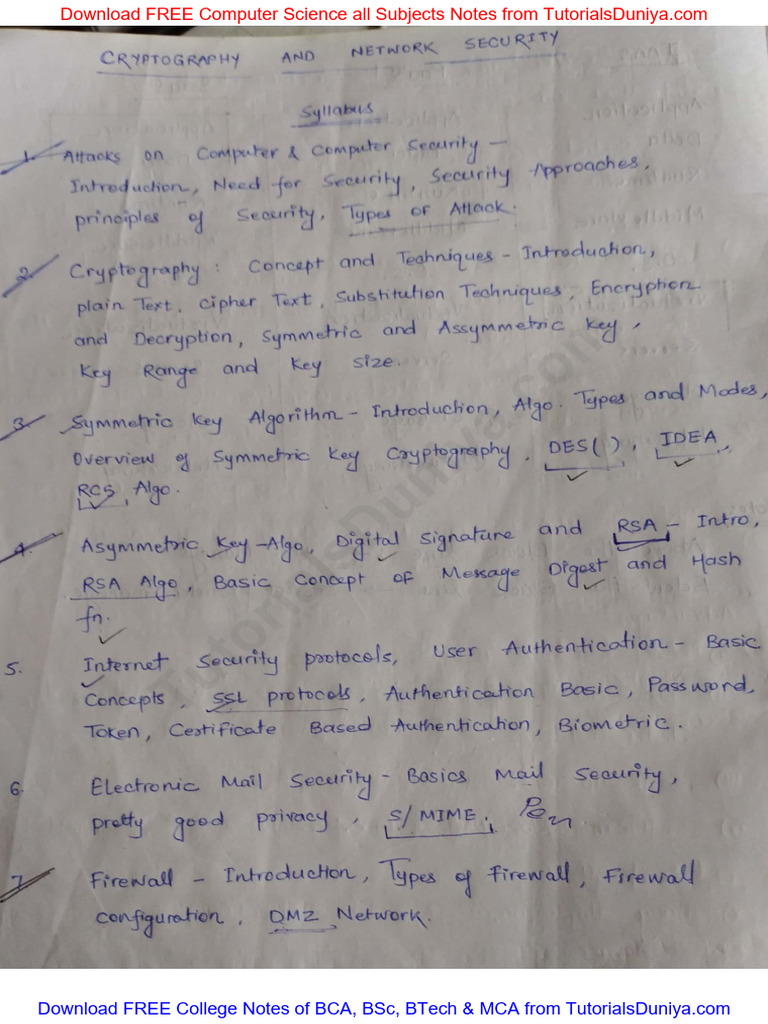 Download FREE Computer Science all Subjects Notes from TutorialsDuniya.com
CRYPTOGRAPHY AND NETWORK SECURITY
Syllabus
1. Attacks on Computer & Computer Security –
Introduction, Need for Security, Security Approaches,
principles of Security, Types of Attack.
2. Cryptography : Concept and Techniques - Introduction,
plain Text, cipher Text, Substitution Techniques, Encryption
and Decryption, Symmetric and Assymmetric key,
Key Range and Key Size.
3. Symmetric key Algorithm - Introduction, Algo. Types and Modes,
Overview of Symmetric key Cryptography, DES( ), IDEA,
RC5 Algo.
4. Asymmetric Key -Algo, Digital Signature and RSA - Intro,
RSA Algo, Basic Concept of Message Digest and Hash
fn.
5. Internet Security protocols, User Authentication - Basic
Concepts, SSL protocols, Authentication Basic, Password,
Token, Certificate Based Authentication, Biometric.
6. Electronic Mail Security - Basics Mail Security,
pretty good privacy, S/MIME.
7. Firewall - Introduction, Types of firewall, Firewall
configuration, DMZ Network.
TutorialsDuniya.com
Download FREE College Notes of BCA, BSc, BTech & MCA from TutorialsDuniya.com